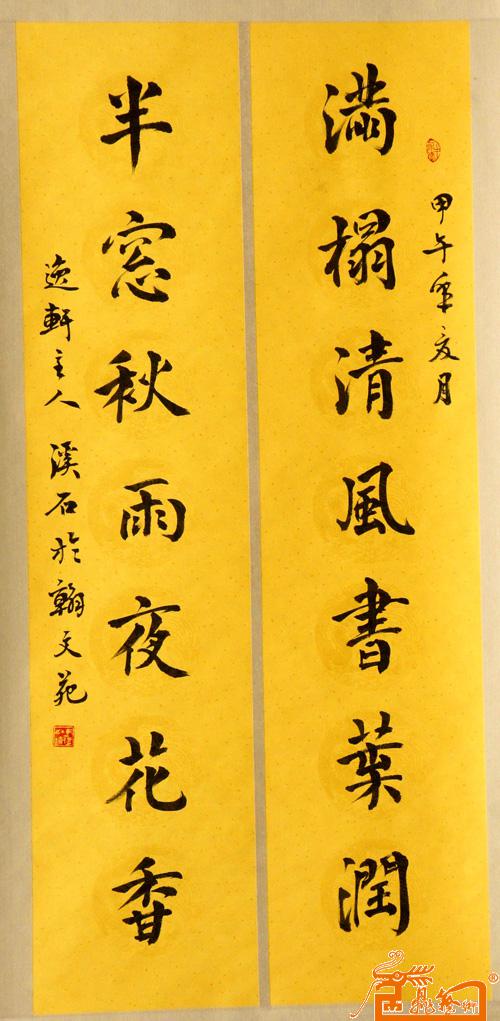 甲午年夏月
满榻清風書葉潤
半窓秋雨夜花香
逸軒主人溪石於翰文苑